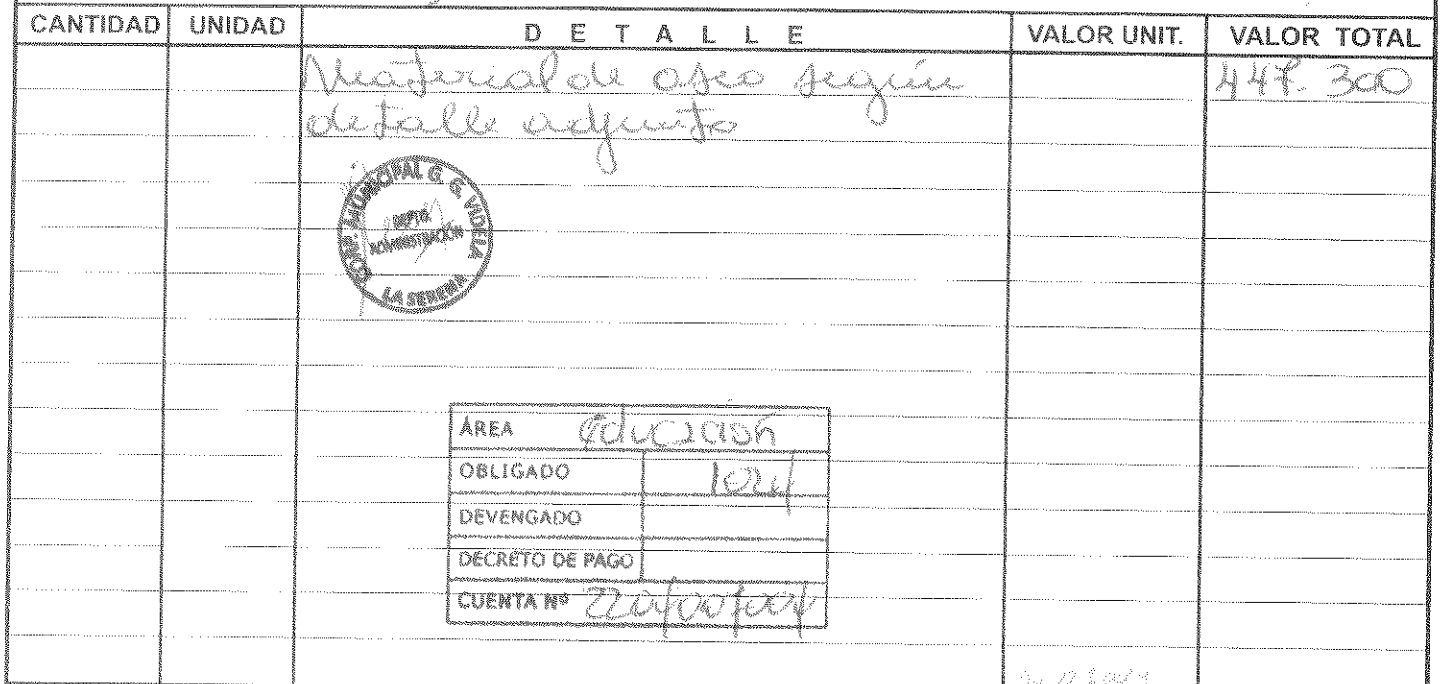 CANTIDAD UNIDAD DETALLE VALOR UNIT. VALOR TOTAL
Material de aseo según
detalle adjunto
CORP. MUNICIPAL G. G. VIDELA
DEPTO.
ADMINISTRACIÓN
LA SERENA
ÁREA educación
OBLIGADO
DEVENGADO
DECRETO DE PAGO
CUENTA Nº